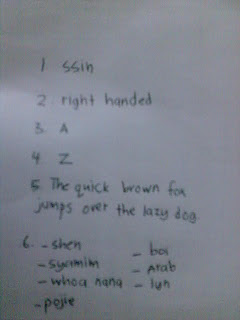 1 ssin
2. right handed
3. A
4. Z
5. The quick brown fox
jumps over the lazy dog.
6. - shen
- syamim
- whoa nana
- pojie
- boi
- Arab
- lyn